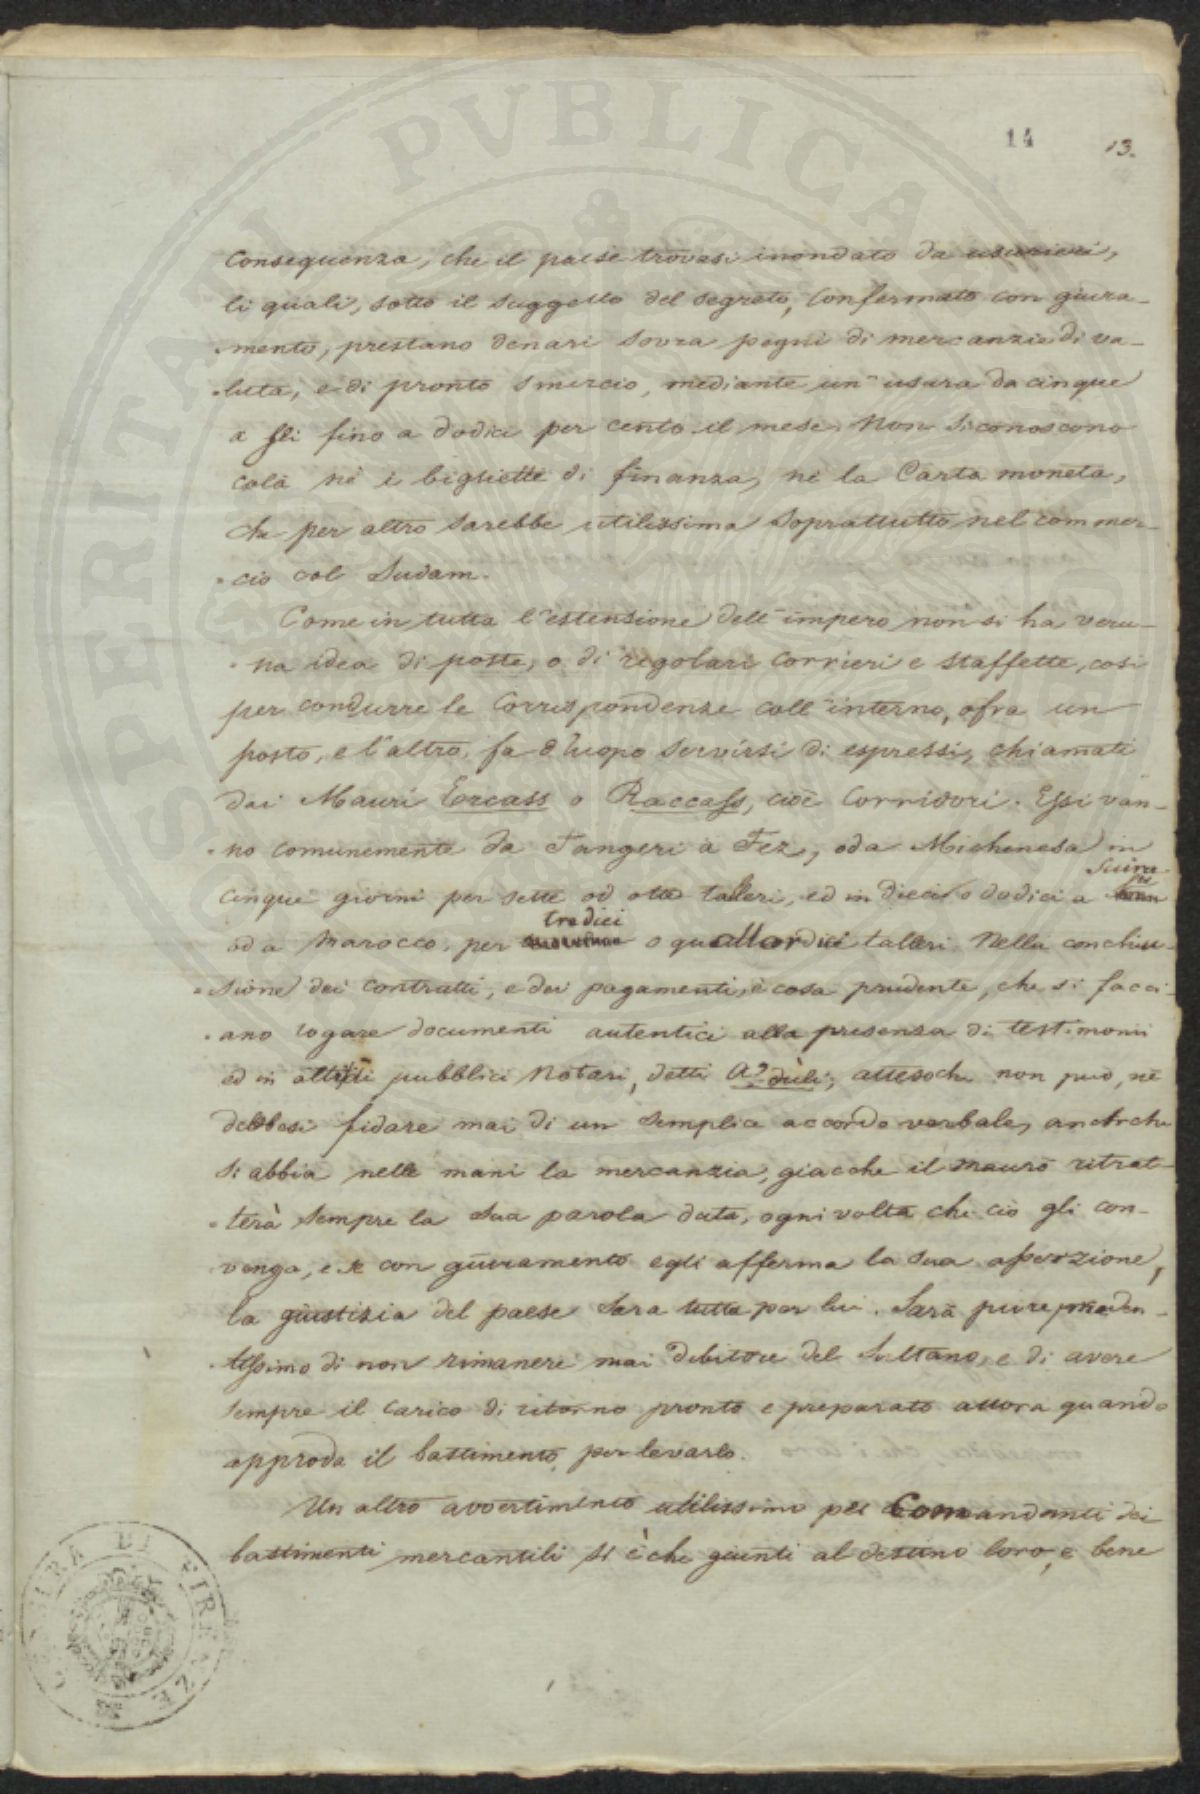 14 13.
conseguenza, che il paese trovasi inondato da usurieri,
li quali, sotto il suggello del segreto, confermato con giura-
mento, prestano denari sovra pegni di mercanzie di va-
luta, e di pronto smercio, mediante un' usura da cinque
a sei fino a dodici per cento il mese. Non si conoscono
colà nè i biglietti di finanza, nè la Carta moneta,
che per altro sarebbe utilissima soprattutto nel commer-
cio col Sudam.
Come in tutta l'estensione dell' impero non si ha veru-
na idea di poste, o di regolari corrieri e staffette, così
per condurre le corrispondenze coll' interno, o fra un
posto, e l'altro, fa d'uopo servirsi di espressi, chiamati
dai Mauri Ercass o Raccass, cioè Corridori. Essi van-
no comunemente da Tangeri a Fez, o da Michenesa in
cinque giorni per sette od otto talleri, ed in dieci o dodici a Suira
od a Marocco, per tredici o quattordici talleri. Nella conchiu-
sione dei contratti, e dei pagamenti, è cosa prudente, che si facci-
ano rogare documenti autentici alla presenza di testimonii
ed in pubblici Notari, detti A?dúli, attesochè non può, nè
debbesi fidare mai di un semplice accordo verbale, anchechè
si abbia nelle mani la mercanzia, giacchè il mauro ritrat-
terà sempre la sua parola data, ogni volta che ciò gli con-
venga, e se con giuramento egli afferma la sua asserzione,
la giustizia del paese sara tutta per lui. Sarà pure pruden-
tissimo di non rimanere mai debitore del Sultano, e di avere
sempre il carico di ritorno pronto e preparato allora quando
approda il bastimento per levarlo.
Un altro avvertimento utilissimo pei Comandanti dei
bastimenti mercantili si è che giunti al destino loro, e bene
PVBLICAE
PROSPERITATI
CAMERA DI FIRENZE